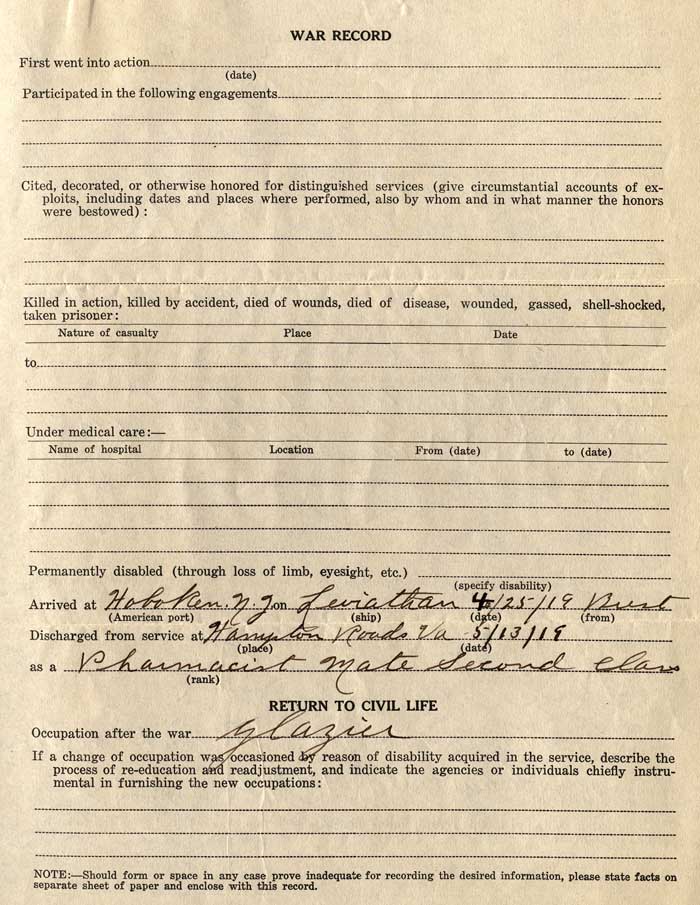 WAR RECORD
First went into action
(date)
Participated in the following engagements
Cited, decorated, or otherwise honored for distinguished services (give circumstantial accounts of ex-
ploits, including dates and places where performed, also by whom and in what manner the honors
were bestowed) :
Killed in action, killed by accident, died of wounds, died of disease, wounded, gassed, shell-shocked,
taken prisoner:
Nature of casualty Place Date
to
Under medical care:—
Name of hospital Location From (date) to (date)
Permanently disabled (through loss of limb, eyesight, etc.)
(specify disability)
Arrived at Hoboken. N. J. on Leviathan 4/25/19 Brest
(American port) (ship) (date) (from)
Discharged from service at Hampton Roads Va 5/13/19
(place) (date)
as a Pharmacist Mate Second Class
(rank)
RETURN TO CIVIL LIFE
Occupation after the war glazier
If a change of occupation was occasioned by reason of disability acquired in the service, describe the
process of re-education and readjustment, and indicate the agencies or individuals chiefly instru-
mental in furnishing the new occupations:
NOTE:—Should form or space in any case prove inadequate for recording the desired information, please state facts on
separate sheet of paper and enclose with this record.